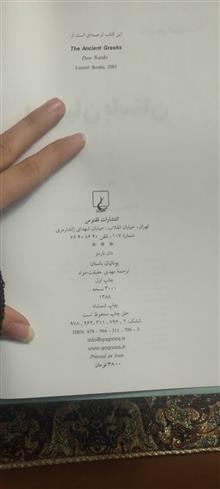 این کتاب ترجمه‌ای است از:
The Ancient Greeks
Don Nardo
Lucent Books, 2001
انتشارات ققنوس
تهران، خیابان انقلاب، خیابان شهدای ژاندارمری
شمارهٔ ۱۰۷، تلفن ۴۰ ۸۶ ۴۰ ۶۶
* * *
دان ناردو
یونانیان باستان
ترجمهٔ مهدی حقیقت‌خواه
چاپ اول
نسخه
۱۳۸۸
چاپ شمشاد
حق چاپ محفوظ است
شابک: ۲ - ۷۹۶ - ۳۱۱ - ۹۶۴ - ۹۷۸
ISBN: 978 - 964 - 311 - 796 - 2
info@qoqnoos.ir
www.qoqnoos.ir
Printed in Iran
۳۸۰۰ تومان